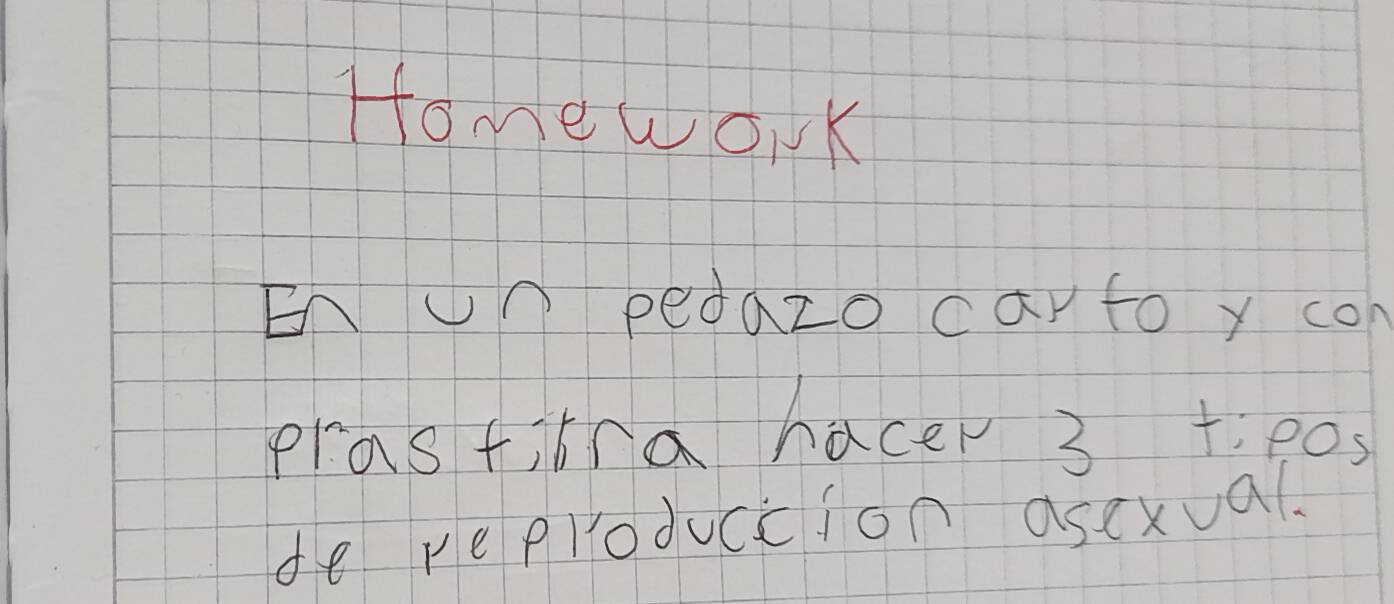 Homework
En un pedazo carto y con
prastitna hacer 3 tipos
de reproduccion asexual.